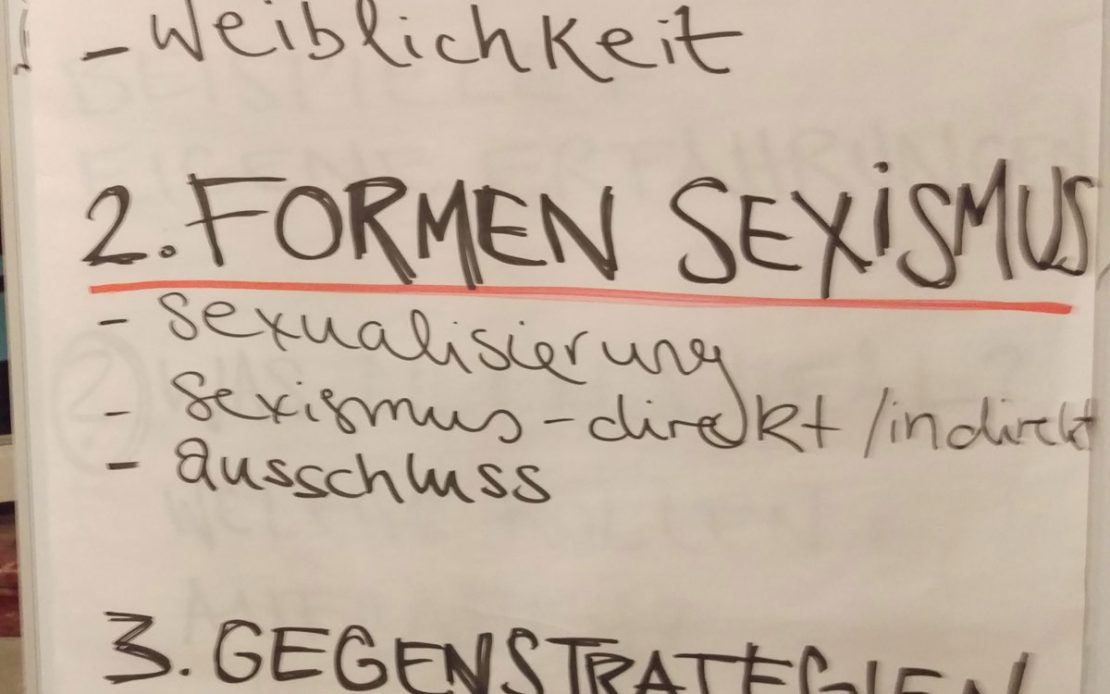 - Weiblichkeit
2. FORMEN SEXiSMUS
- Sexualisierung
- Sexismus-direkt/indirekt
- ausschluss
3. GEGENSTRATEGIEN